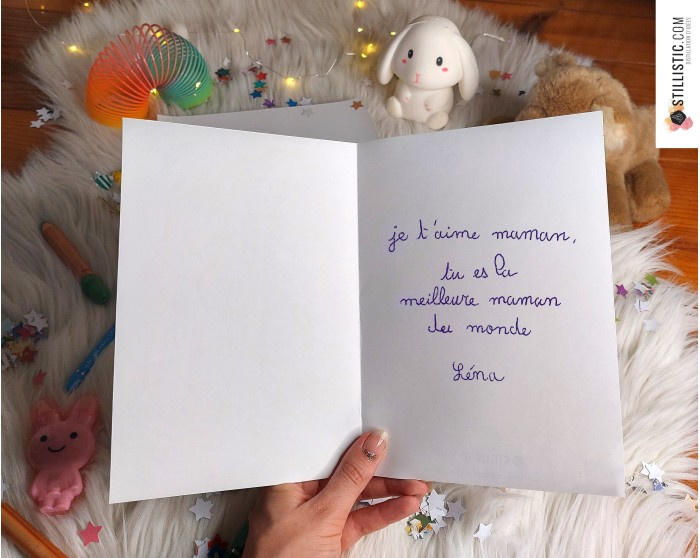 je t'aime maman,
tu es la
meilleure maman
du monde
Léna
STILLISTIC.COM
DISTILLATION D'IDÉES